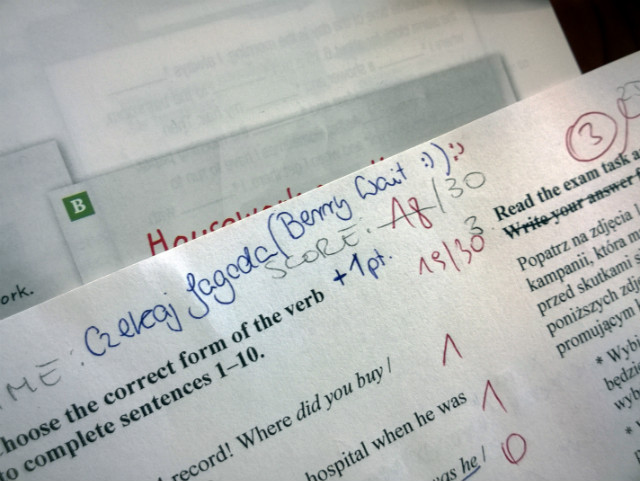 B
Housework
ork.
3
ME: Czekaj Jagoda (Berry Wait :)) :)
SCORE: 18/30
+1pt. 19/30
3
Choose the correct form of the verb
to complete sentences 1–10.
record! Where did you buy / 1
hospital when he was 1
was he / 0
Read the exam task a
Write your answer f
Popatrz na zdjęcia
kampanii, która m
przed skutkami s
poniższych zdj
promującym
* Wybi
będzie
wyb
*